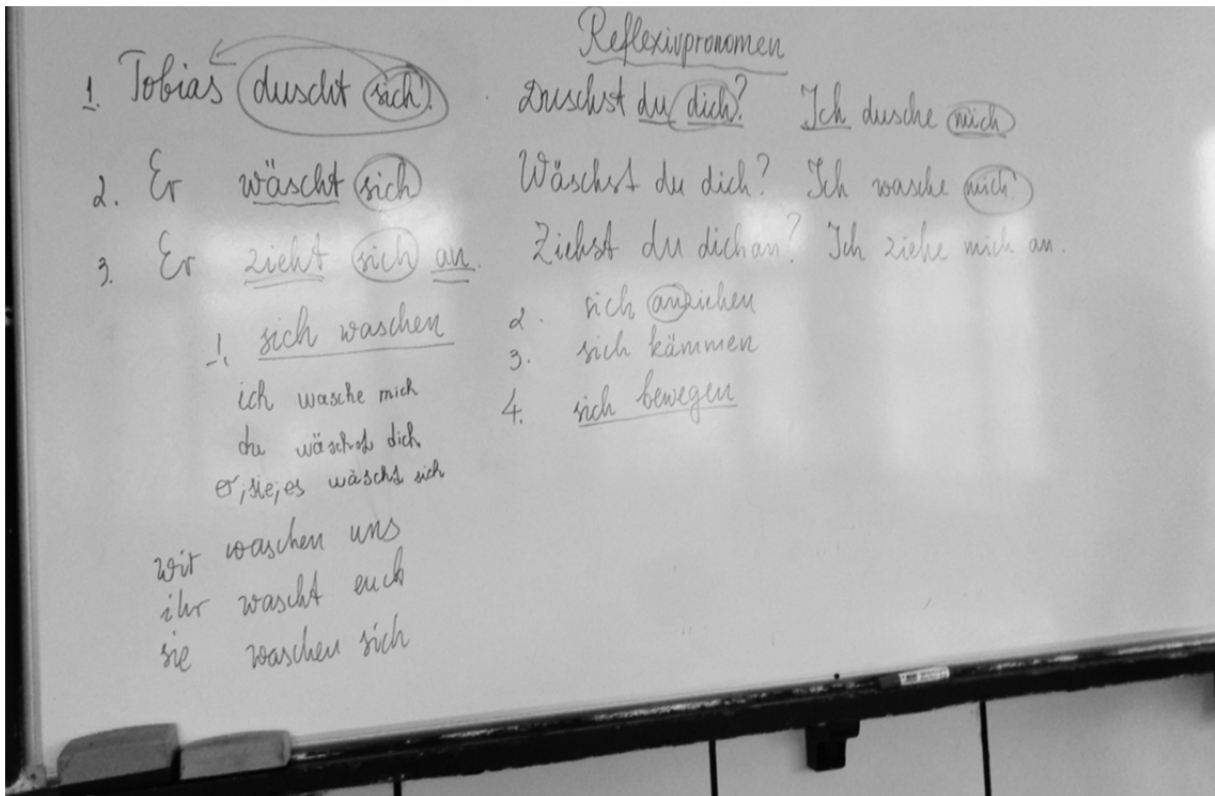 Reflexivpronomen
1. Tobias duscht sich. Duschst du dich? Ich dusche mich
2. Er wäscht sich Wäschst du dich? Ich wasche mich
3. Er zieht sich an. Ziehst du dich an? Ich ziehe mich an.
1. sich waschen
ich wasche mich
du wäschst dich
er, sie, es wäscht sich
wir waschen uns
ihr wascht euch
sie waschen sich
2. sich anziehen
3. sich kämmen
4. sich bewegen